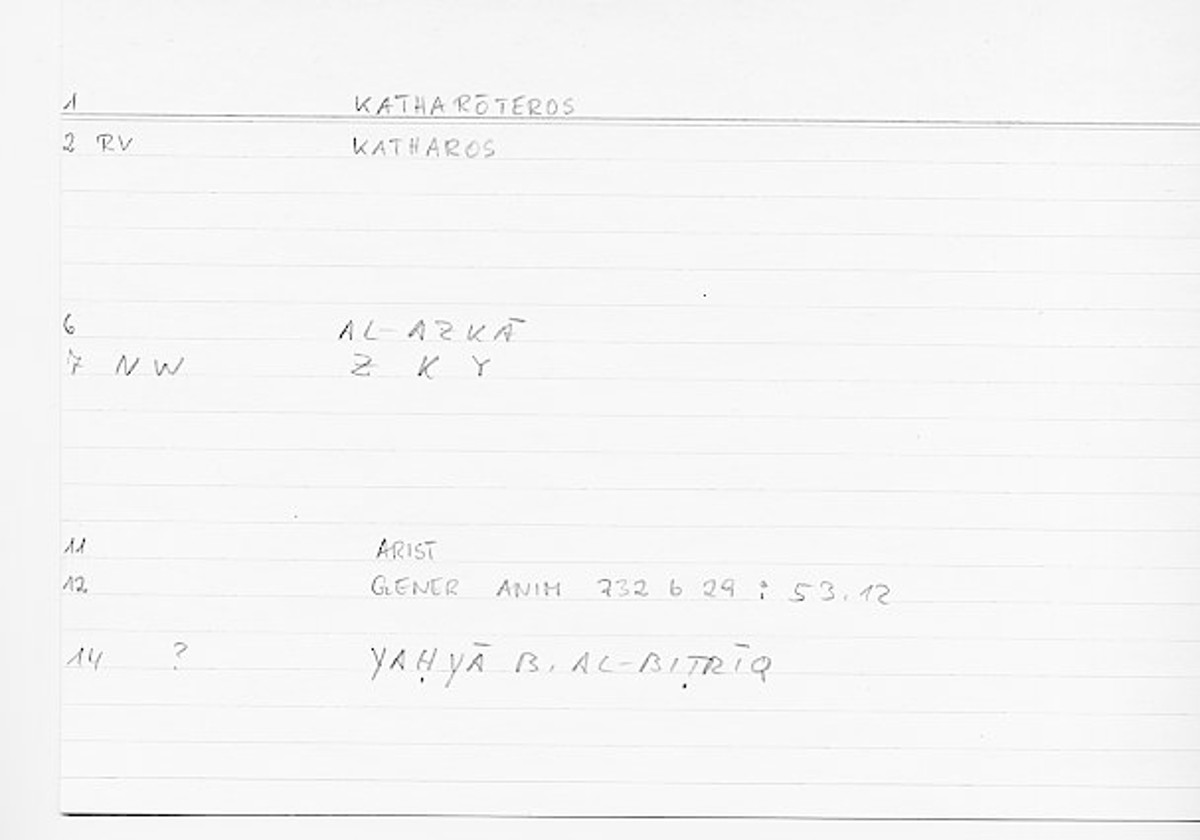 1 KATHARŌTEROS
2 RV KATHAROS
6 AL-AZKĀ
7 NW Z K Y
11 ARIST
12 GENER ANIM 732 b 29 : 53.12
14 ? YAḤYĀ B. AL-BIṬRĪQ